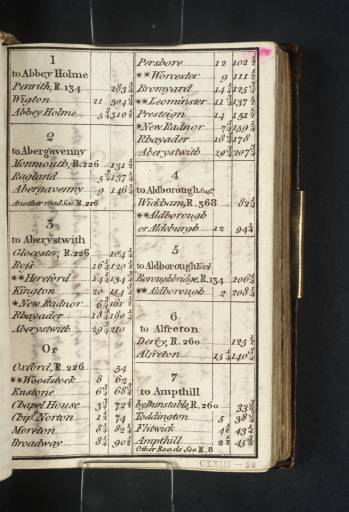 1
to Abbey Holme
Penrith, R.134 283 1/4
Wigton 21 304 1/2
Abbey Holme 5 3/4 310 1/4
2
to Abergavenny
Monmouth, R.226 131 1/2
Ragland 137
Abergavenny 9 146 1/4
Another road See R.226
3
to Aberystwith
Glocester, R.226 104 1/4
Ross 16 1/4 120 1/2
**Hereford 14 134
Kington 20 154
*New Radnor 6 161
Rhayader 18 180
Aberystwith 29 210
Or
Oxford, R.226 54
**Woodstock 8 62
Enstone 6 3/4 68 3/4
Chapel House 3 3/4 72 1/2
Chipg. Norton 1 1/2 74
Moreton 8 1/4 82 1/4
Broadway 8 1/4 90 1/2
Pershore 12 102 1/2
**Worcester 9 111 1/2
Bromyard 14 125
**Leominster 11 137
Presteign 14 151
*New Radnor 7 159
Rhayader 18 178
Aberystwith 29 207
4
to Aldborough Suff.
Wickham, R.568 82 1/4
**Aldborough
or Aldeburgh 12 94 1/4
5
to Aldborough York
Boroughbridge, R.134 206 1/4
**Aldborough 2 208 1/4
6
to Alfreton
Derby, R.260 125
Alfreton 15 140
7
to Ampthill
by Dunstable, R.260 33
Toddington 5 38
Flitwick 4 43
Ampthill 2 45
Other Roads See R.8
CXXIII - 50